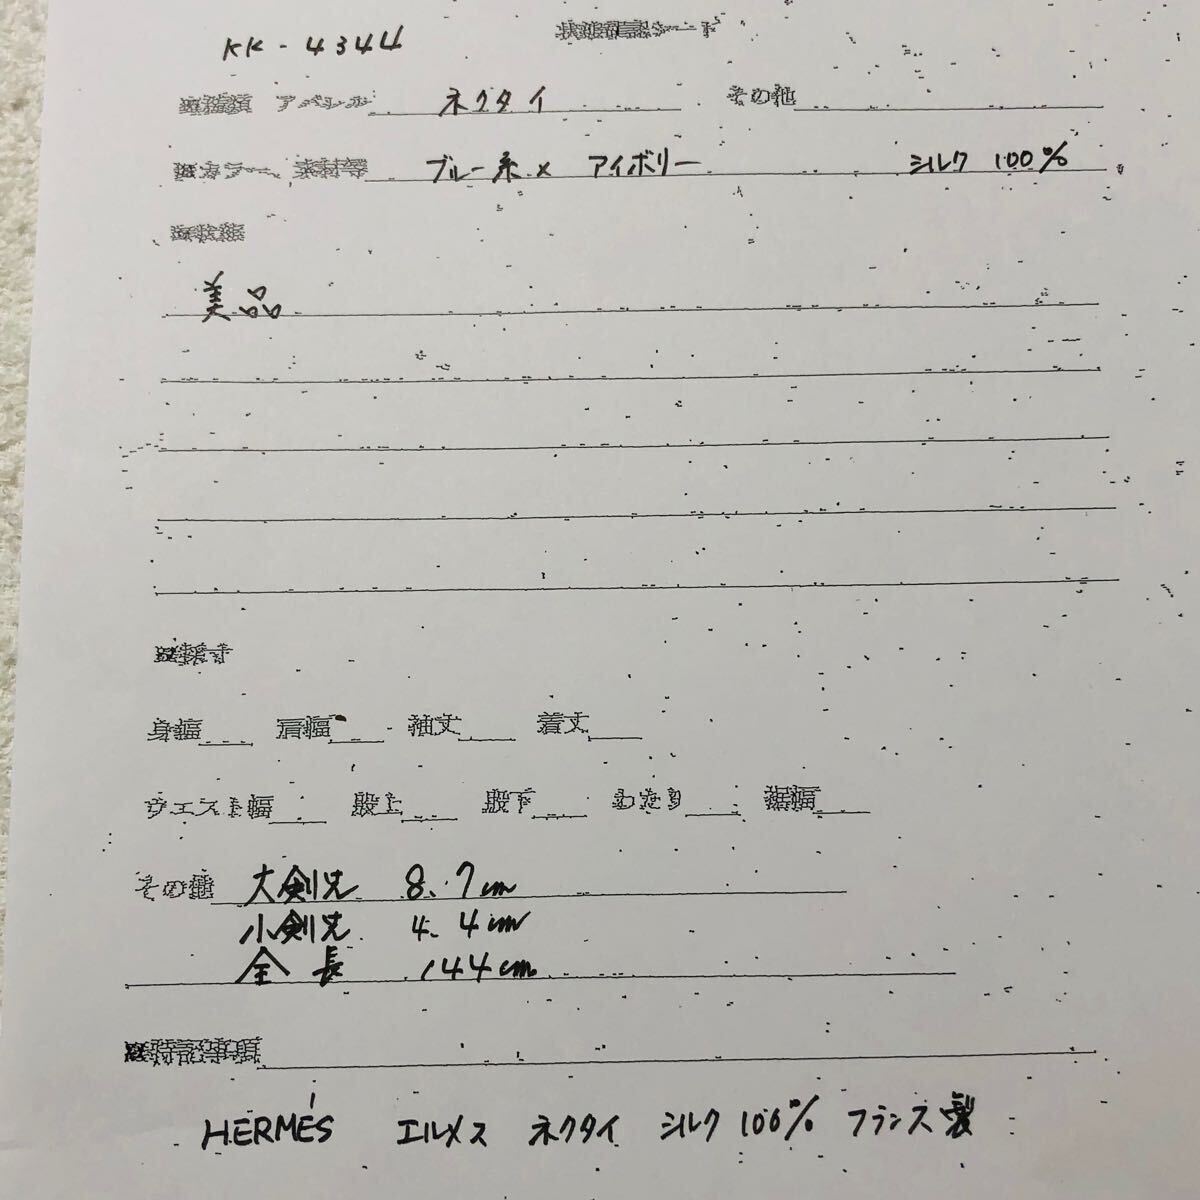 KK-4344
状態確認シート
アパレル ネクタイ その他
カラー、素材等 ブルー系 × アイボリー シルク 100%
状態
美品
採寸
身幅 肩幅 袖丈 着丈
ウエスト幅 股上 股下 わたり 裾幅
その他 大剣先 8.7cm
小剣先 4.4cm
全長 144cm
特記事項
HERMÉS エルメス ネクタイ シルク 100% フランス製